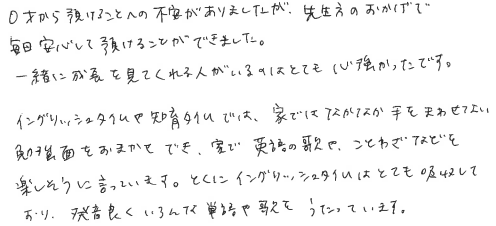 0才から預けることへの不安がありましたが、先生方のおかげで
毎日安心して預けることができました。
一緒に成長を見てくれる人がいるのはとても心強かったです。
イングリッシュタイムや知育タイムでは、家ではなかなか手をまわせてない
勉強面をおまかせでき、家で英語の歌や、ことわざなどを
楽しそうに言っています。とくにイングリッシュタイムはとても吸収して
おり、発音良くいろんな単語や歌をうたっています。